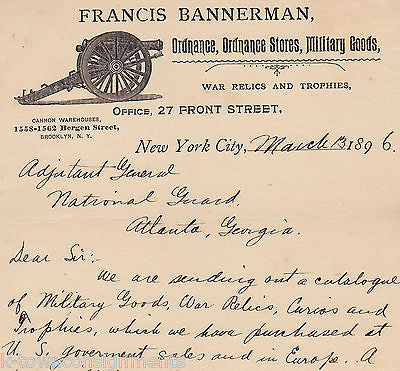 FRANCIS BANNERMAN,
Ordnance, Ordnance Stores, Military Goods,
WAR RELICS AND TROPHIES,
OFFICE, 27 FRONT STREET,
CANNON WAREHOUSES,
1558-1562 Bergen Street,
BROOKLYN, N. Y.
New York City, March 13 1896.
Adjutant General
National Guard.
Atlanta, Georgia.
Dear Sir:-
We are sending out a catalogue
of Military Goods, War Relics, Curios and
Trophies, which we have purchased at
U. S. goverment sales and in Europe. A
k-townconsignments